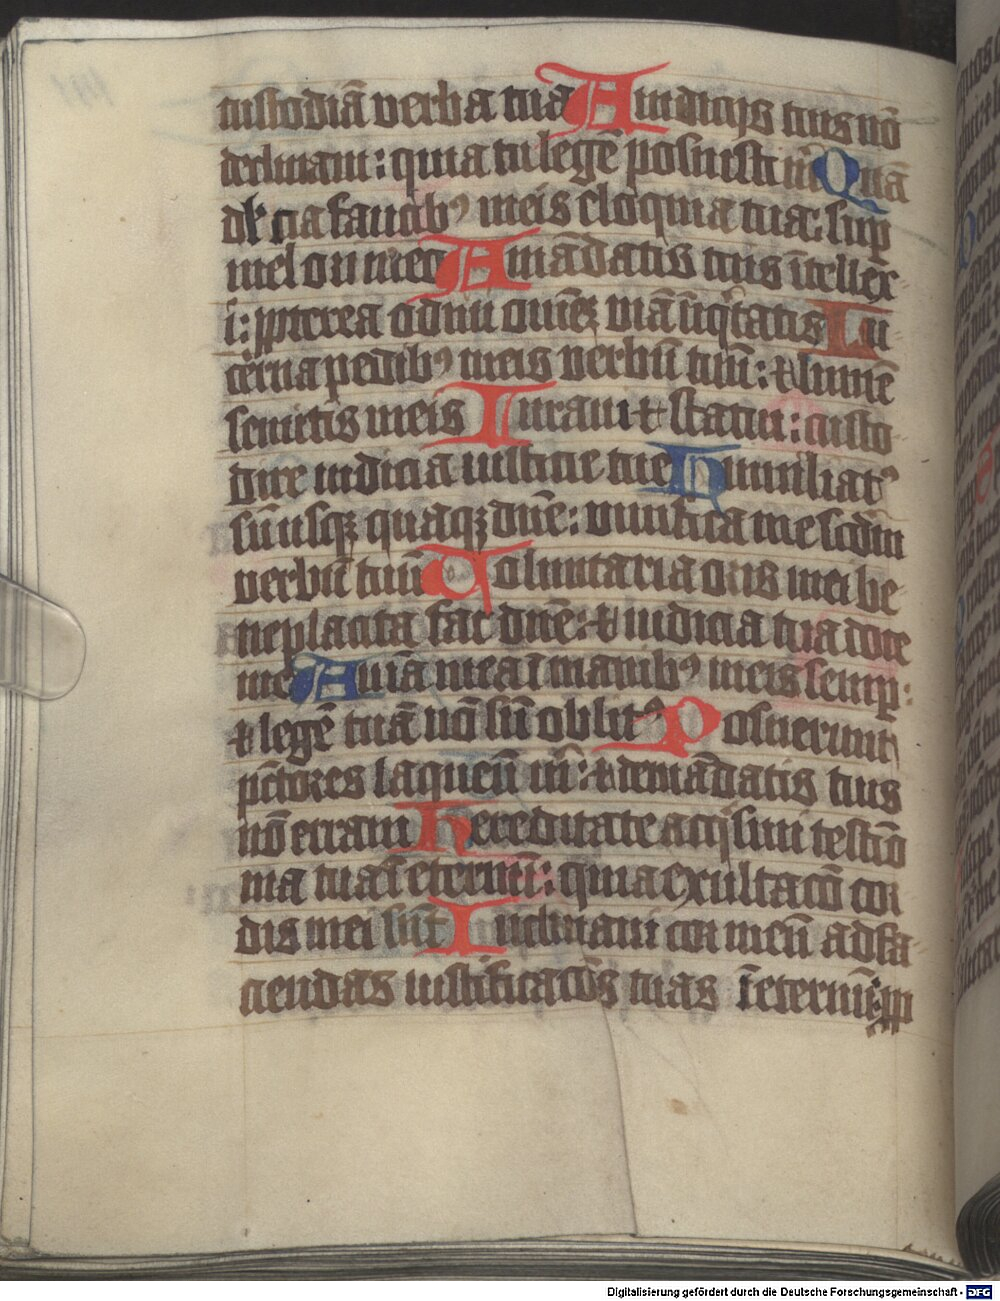 custodiā verba tua A iudicijs tuis nō
declinaui : quia tu legē posuisti m̄ Quā
dulcia faucibꝰ meis eloquia tua : sup
mel ori meo A mādatis tuis ītellex
i : ppterea odiui omēꝫ viā iiqͥtatis Lu
cerna pedibꝰ meis verbū tuū : ⁊ lumē
semitis meis Iuraui ⁊ statui : custo
dire iudicia iusticie tue Humiliatꝰ
sū usqꝫ quaqꝫ dn̄e : viuifica me scdm
verbū tuū Voluntaria oris mei be
neplacita fac dn̄e : ⁊ iudicia tua doce
me Aīa mea ī manibꝰ meis semp :
⁊ legē tuā nō sū oblitꝰ Posuerunt
pctōres laqueū m̄ : ⁊ de mādatis tuis
nō erraui Hereditate acqͥsiui testiō
nia tua ī eternū : quia exultacō cor
dis mei sūt Inclinaui cor meū ad fa
ciendas iustificacōs tuas ī eternū : pp
Digitalisierung gefördert durch die Deutsche Forschungsgemeinschaft - DFG